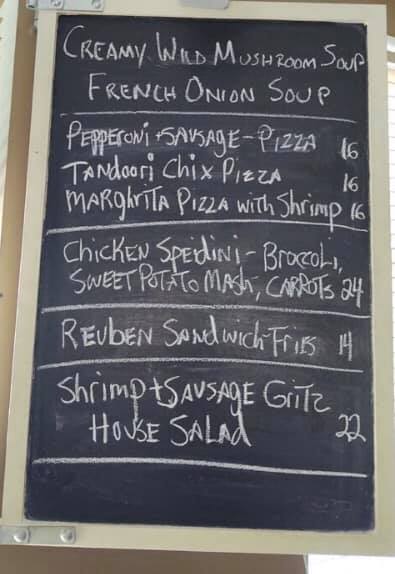 CREAMY WILD MUSHROOM SOUP
FRENCH ONION SOUP
PEPPERONI + SAUSAGE - PIZZA 16
TANDOORI CHIX PIZZA 16
MARGHRITA PIZZA WITH SHRIMP 16
CHICKEN SPEIDINI - BROCCOLI,
SWEET POTATO MASH, CARROTS 24
REUBEN SANDWICH-FRIES 14
SHRIMP + SAUSAGE GRITZ
HOUSE SALAD 22